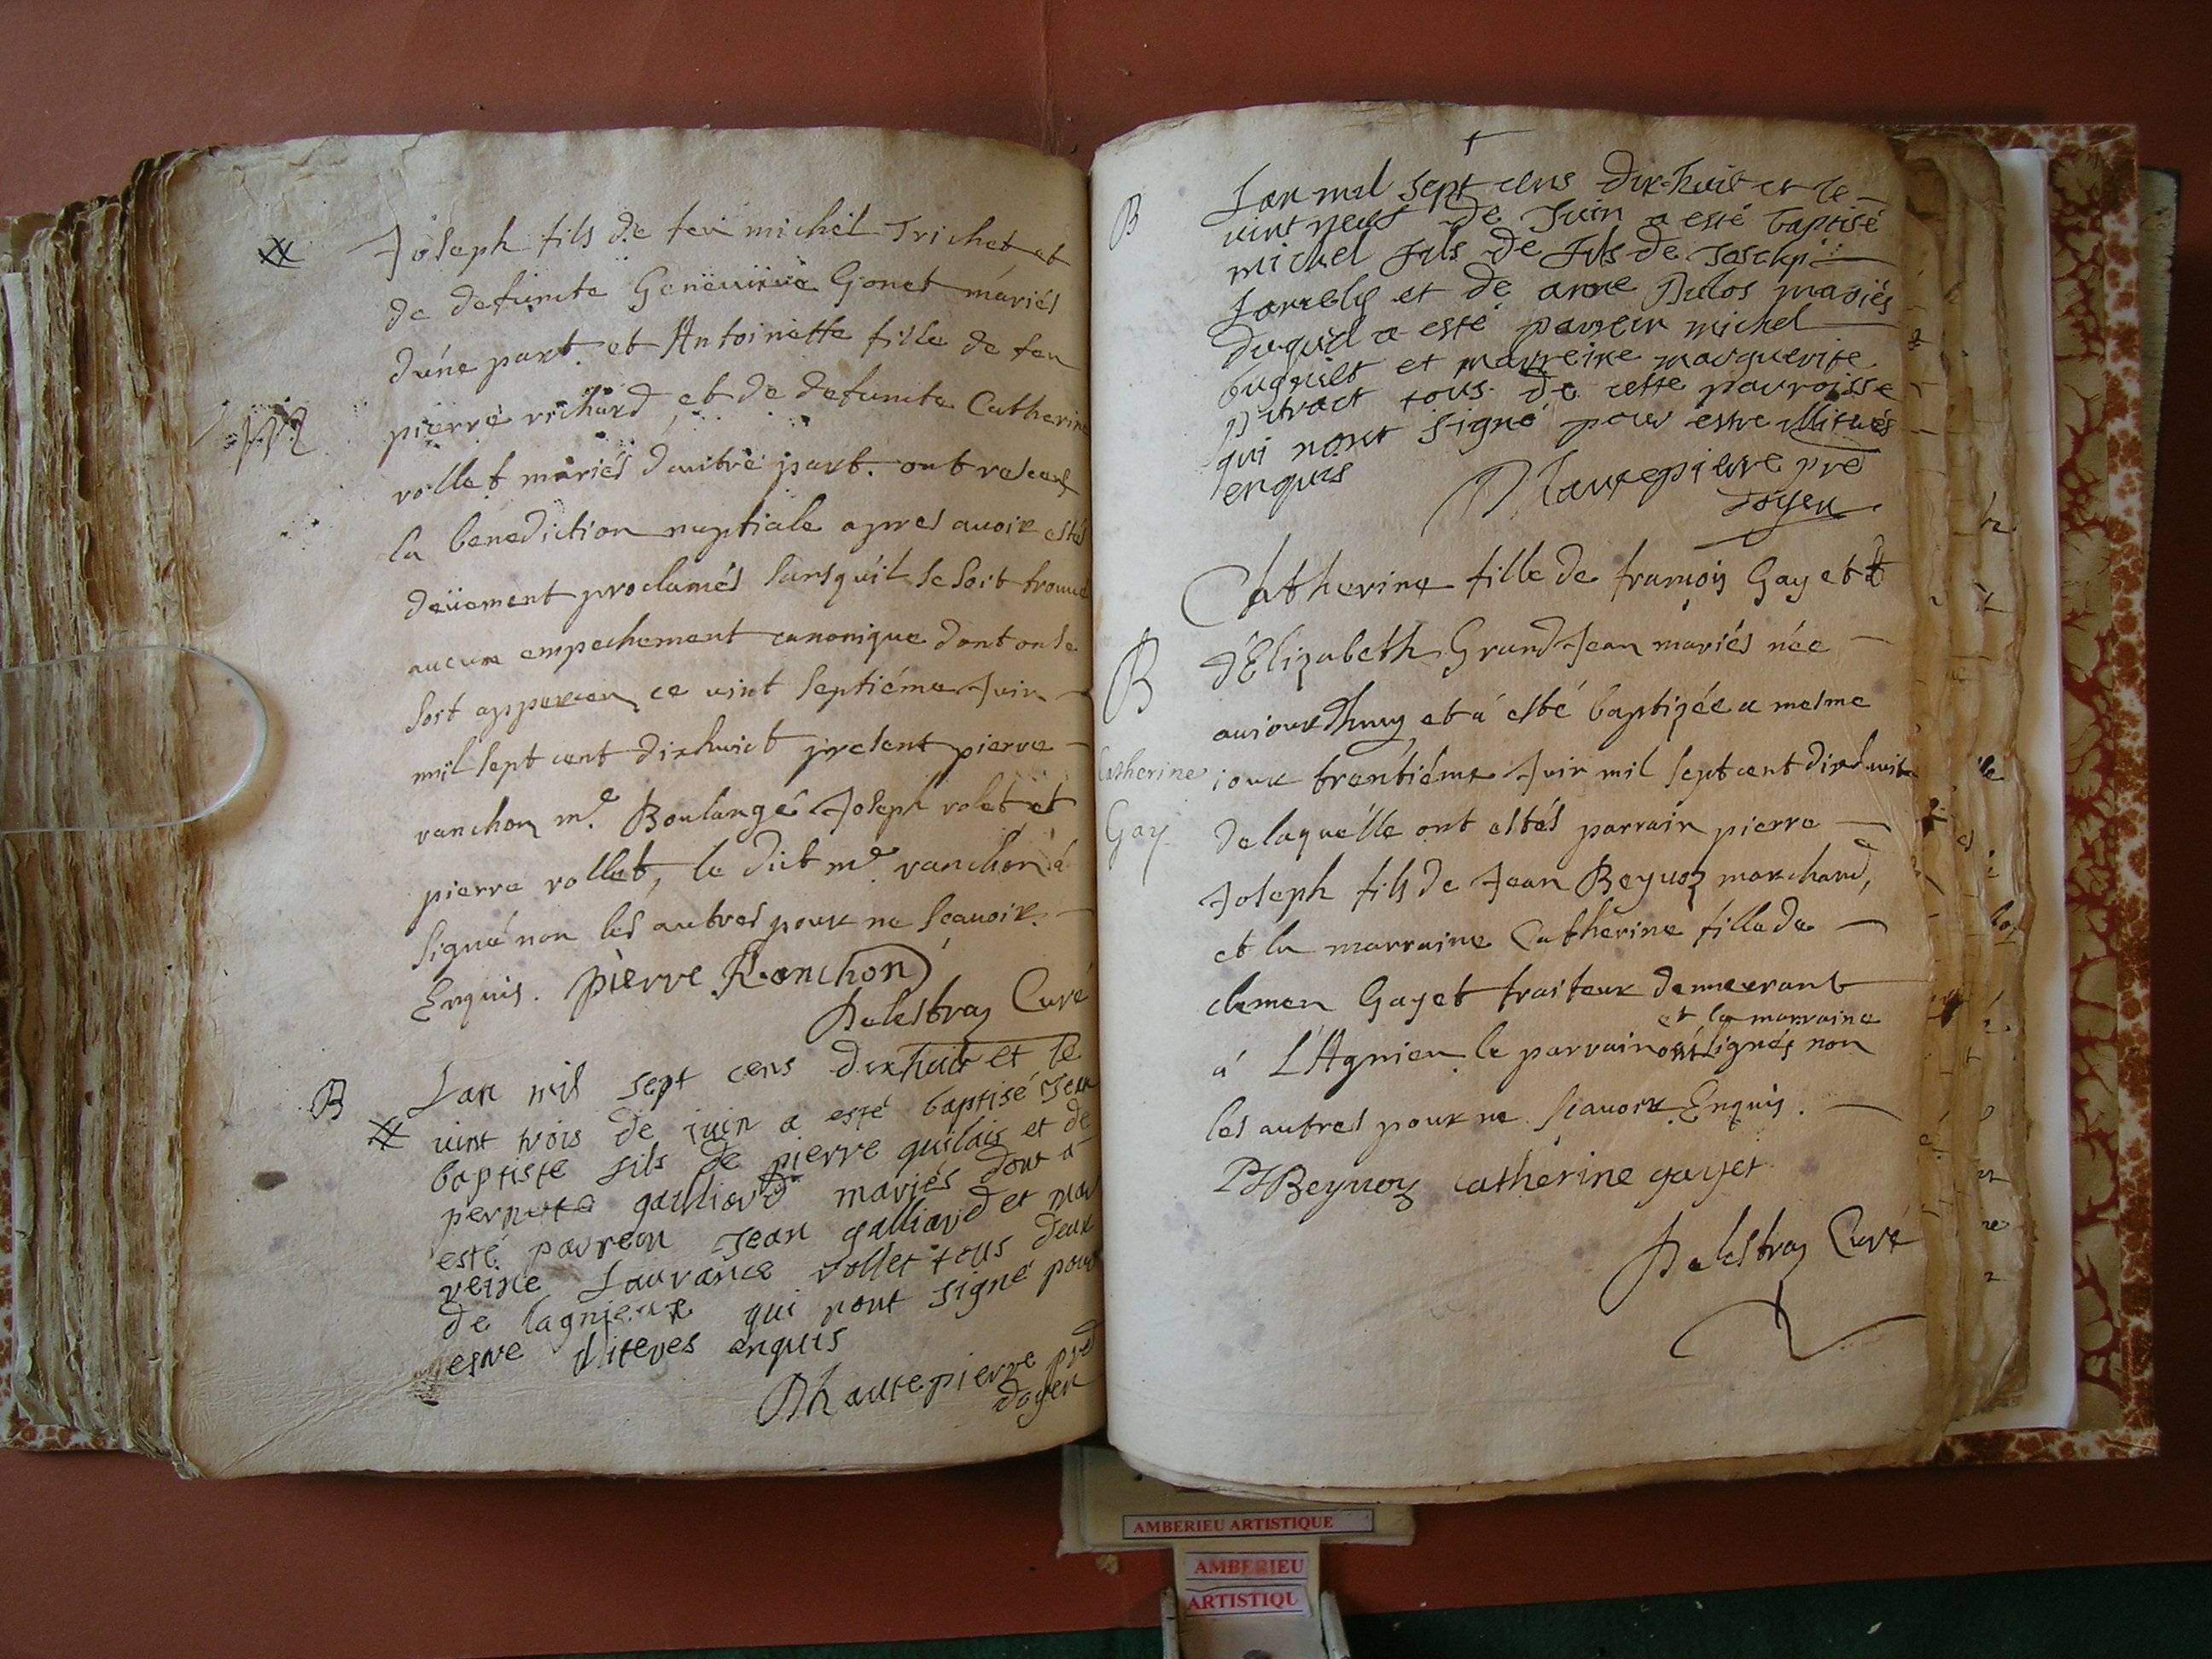 Joseph fils de feu michel Trichet et
de defuncte Genevieve Gonet mariés
d'une part. et Antoinette fille de feu
pierre richard et de defuncte Catherine
rollet mariés d'autre part. ont receus
la benediction nuptiale apres avoir estés
deüement proclamés sans qu'il se soit trouvé
aucun empechement canonique dont on se
soit apperceu, ce vint septiéme Juin
mil sept cent dixhuict present pierre
ranchon me. Boulangé Joseph rolet et
pierre rollet, le dict me. ranchon á
signé non les autres pour ne scavoir.
Enquis. pierre Ranchon
Delestraz Curé
B Lan mil sept cens dixhuit et le
vint trois de juin a esté baptisé Jean
baptiste fils de pierre quilais et de
galliard mariés dont a
esté parrein Jean galliard et mar
reine Laurance rollet tous deux
de lagnieux qui nont signé pour
estre illiteres enquis
Dhautepierre pre
doyen
B Lan mil sept cens dix-huit et le
vint neuf de Juin a esté baptisé
michel fils de fils de Joseph
et de anne mariés
duquel a esté parrein michel
buguiet et marreine marguerite
tous de cette parroisse
qui nont signé pour estre illiterés
enquis
Dhautepierre pre
doyen
Catherine fille de françois Gay et
B d'Elizabeth GrandJean mariés née
aujourdhuy et á esté baptizée a mesme
Catherine jour trentiéme Juin mil sept cent dixhuit
Gay de laquélle ont estés parrain pierre
Joseph fils de Jean Beynoz marchand,
et la marraine Catherine fille de
clemen Gayet traiteur demeurant
et la marraine
á L'Agnieu le parrain ont signés non
les autres pour ne scavoir Enquis.
PJBeynoz catherine gayet
Delestraz Curé
AMBERIEU ARTISTIQUE
AMBERIEU
ARTISTIQU